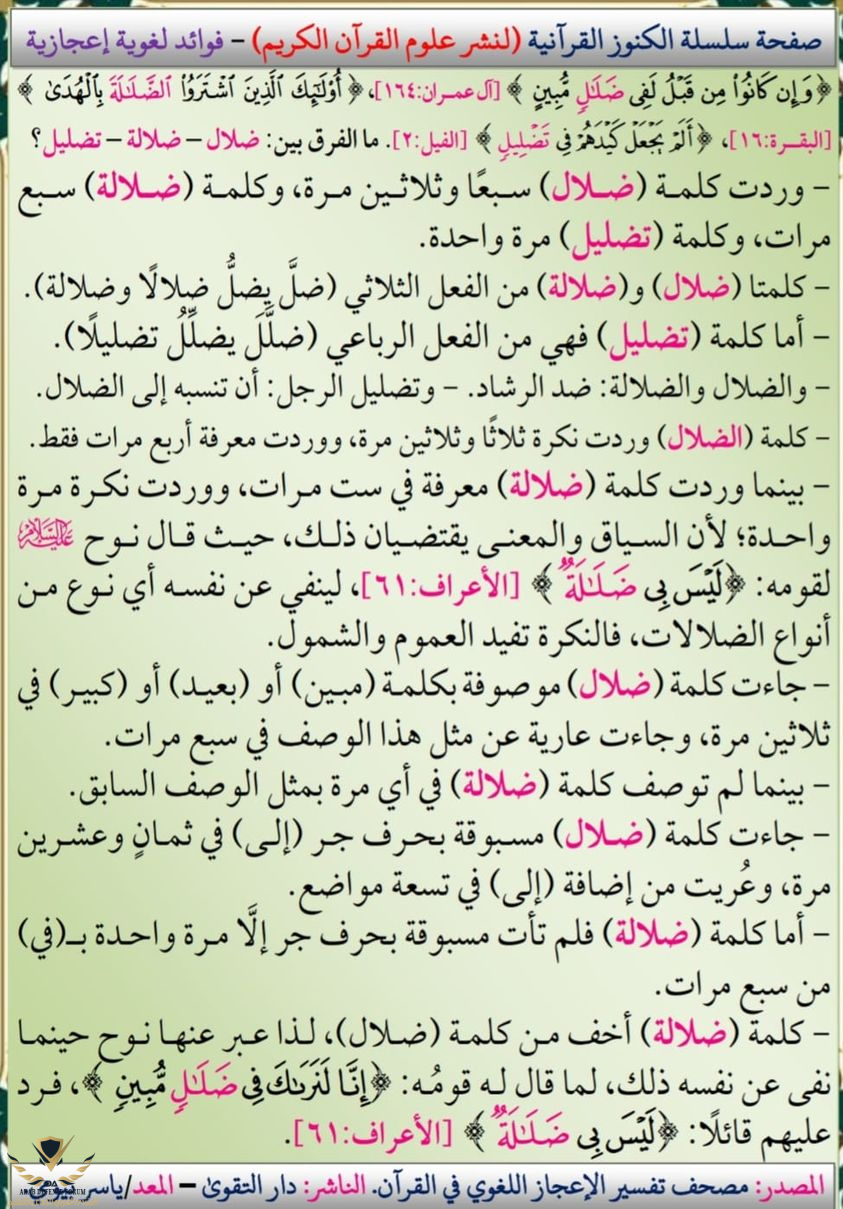 صفحة سلسلة الكنوز القرآنية (لنشر علوم القرآن الكريم) – فوائد لغوية إعجازية
﴿ وَإِن كَانُوا۟ مِن قَبْلُ لَفِى ضَلَـٰلٍ مُّبِينٍ ﴾ [آل عمران:١٦٤]، ﴿ أُو۟لَـٰٓئِكَ ٱلَّذِينَ ٱشْتَرَوُا۟ ٱلضَّلَـٰلَةَ بِٱلْهُدَىٰ ﴾
[البقــرة:١٦]، ﴿ أَلَمْ يَجْعَلْ كَيْدَهُمْ فِى تَضْلِيلٍ ﴾ [الفيل:٢]. ما الفرق بين: ضلال – ضلالة – تضليل؟
– وردت كلمـة (ضـلال) سـبعًا وثلاثـين مـرة، وكلمـة (ضـلالة) سـبع
مرات، وكلمة (تضليل) مرة واحدة.
– كلمتا (ضلال) و(ضلالة) من الفعل الثلاثي (ضلَّ يضلُّ ضلالًا وضلالة).
– أما كلمة (تضليل) فهي من الفعل الرباعي (ضلَّلَ يضلِّلُ تضليلًا).
– والضلال والضلالة: ضد الرشاد. – وتضليل الرجل: أن تنسبه إلى الضلال.
– كلمة (الضلال) وردت نكرة ثلاثًا وثلاثين مرة، ووردت معرفة أربع مرات فقط.
– بينما وردت كلمة (ضلالة) معرفة في ست مـرات، ووردت نكـرة مـرة
واحـدة؛ لأن السـياق والمعنـى يقتضـيان ذلـك، حيـث قـال نـوح عليه السلام
لقومه: ﴿ لَيْسَ بِى ضَلَـٰلَةٌ ﴾ [الأعراف:٦١]، لينفي عن نفسـه أي نـوع مـن
أنواع الضلالات، فالنكرة تفيد العموم والشمول.
– جاءت كلمة (ضلال) موصوفة بكلمـة (مبـين) أو (بعيـد) أو (كبيـر) في
ثلاثين مرة، وجاءت عارية عن مثل هذا الوصف في سبع مرات.
– بينما لم توصف كلمة (ضلالة) في أي مرة بمثل الوصف السابق.
– جاءت كلمة (ضـلال) مسـبوقة بحـرف جـر (إلـى) في ثـمـانٍ وعشـرين
مرة، وعُريت من إضافة (إلى) في تسعة مواضع.
– أما كلمة (ضلالة) فلم تأت مسبوقة بحرف جر إلَّا مـرة واحـدة بـ(في)
من سبع مرات.
– كلمة (ضلالة) أخف مـن كلمـة (ضـلال)، لـذا عـبر عنهـا نـوح حينمـا
نفى عن نفسه ذلك، لما قال لـه قومُـه: ﴿ إِنَّا لَنَرَىٰكَ فِى ضَلَـٰلٍ مُّبِينٍ ﴾، فـرد
عليهم قائلًا: ﴿ لَيْسَ بِى ضَلَـٰلَةٌ ﴾ [الأعراف:٦١].
المصدر: مصحف تفسير الإعجاز اللغوي في القرآن. الناشر: دار التقوىٰ – المعد/ياسر